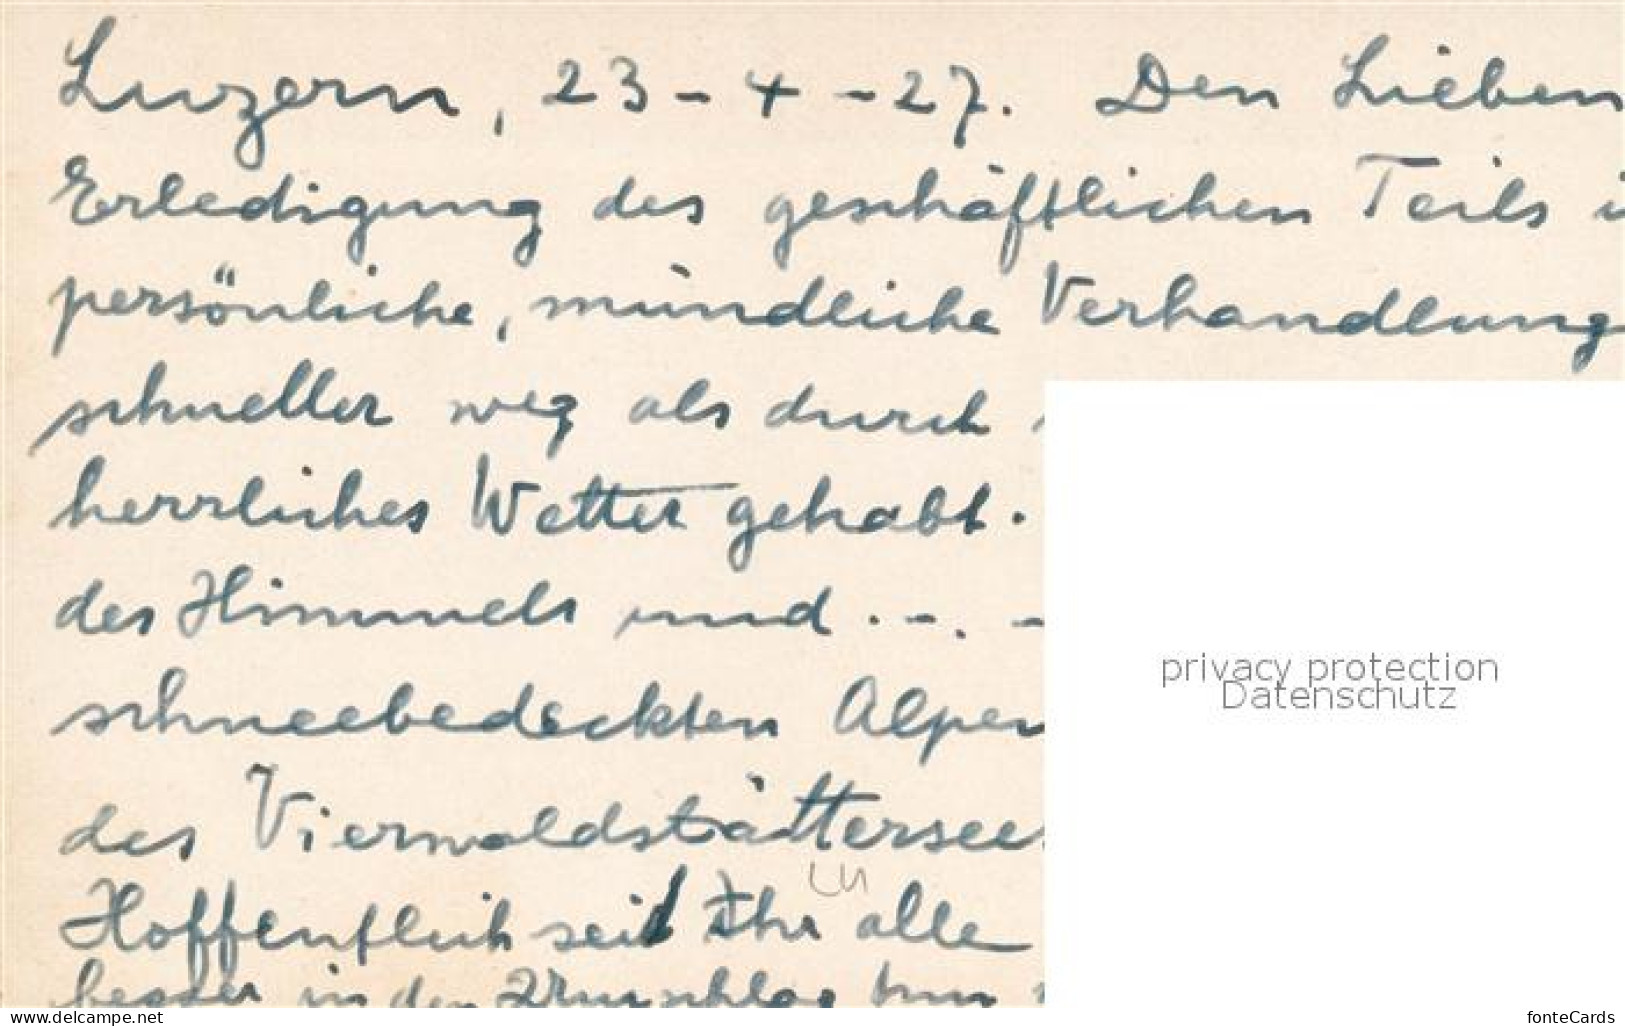 Luzern, 23-4-27. Den Lieben
Erledigung des geschäftlichen Teils
persönliche, mündliche Verhandlung
schneller weg als durch
herrliches Wetter gehabt.
des Himmels und . - . -
schneebedeckten Alpen
des Vierwaldstättersees
Hoffentlich seid Ihr alle
besser in den
privacy protection
Datenschutz
www.delcampe.net
fonteCards